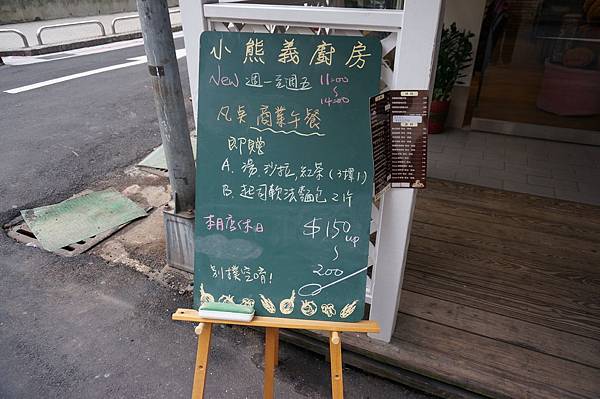 小熊義廚房
New 週一至週五 11:00
~
14:00
凡点 商業午餐
即贈
A. 湯.沙拉,紅茶(3擇1)
B. 起司軟法麵包 2片
本店休日
$150 up
~
200
別撲空唷!